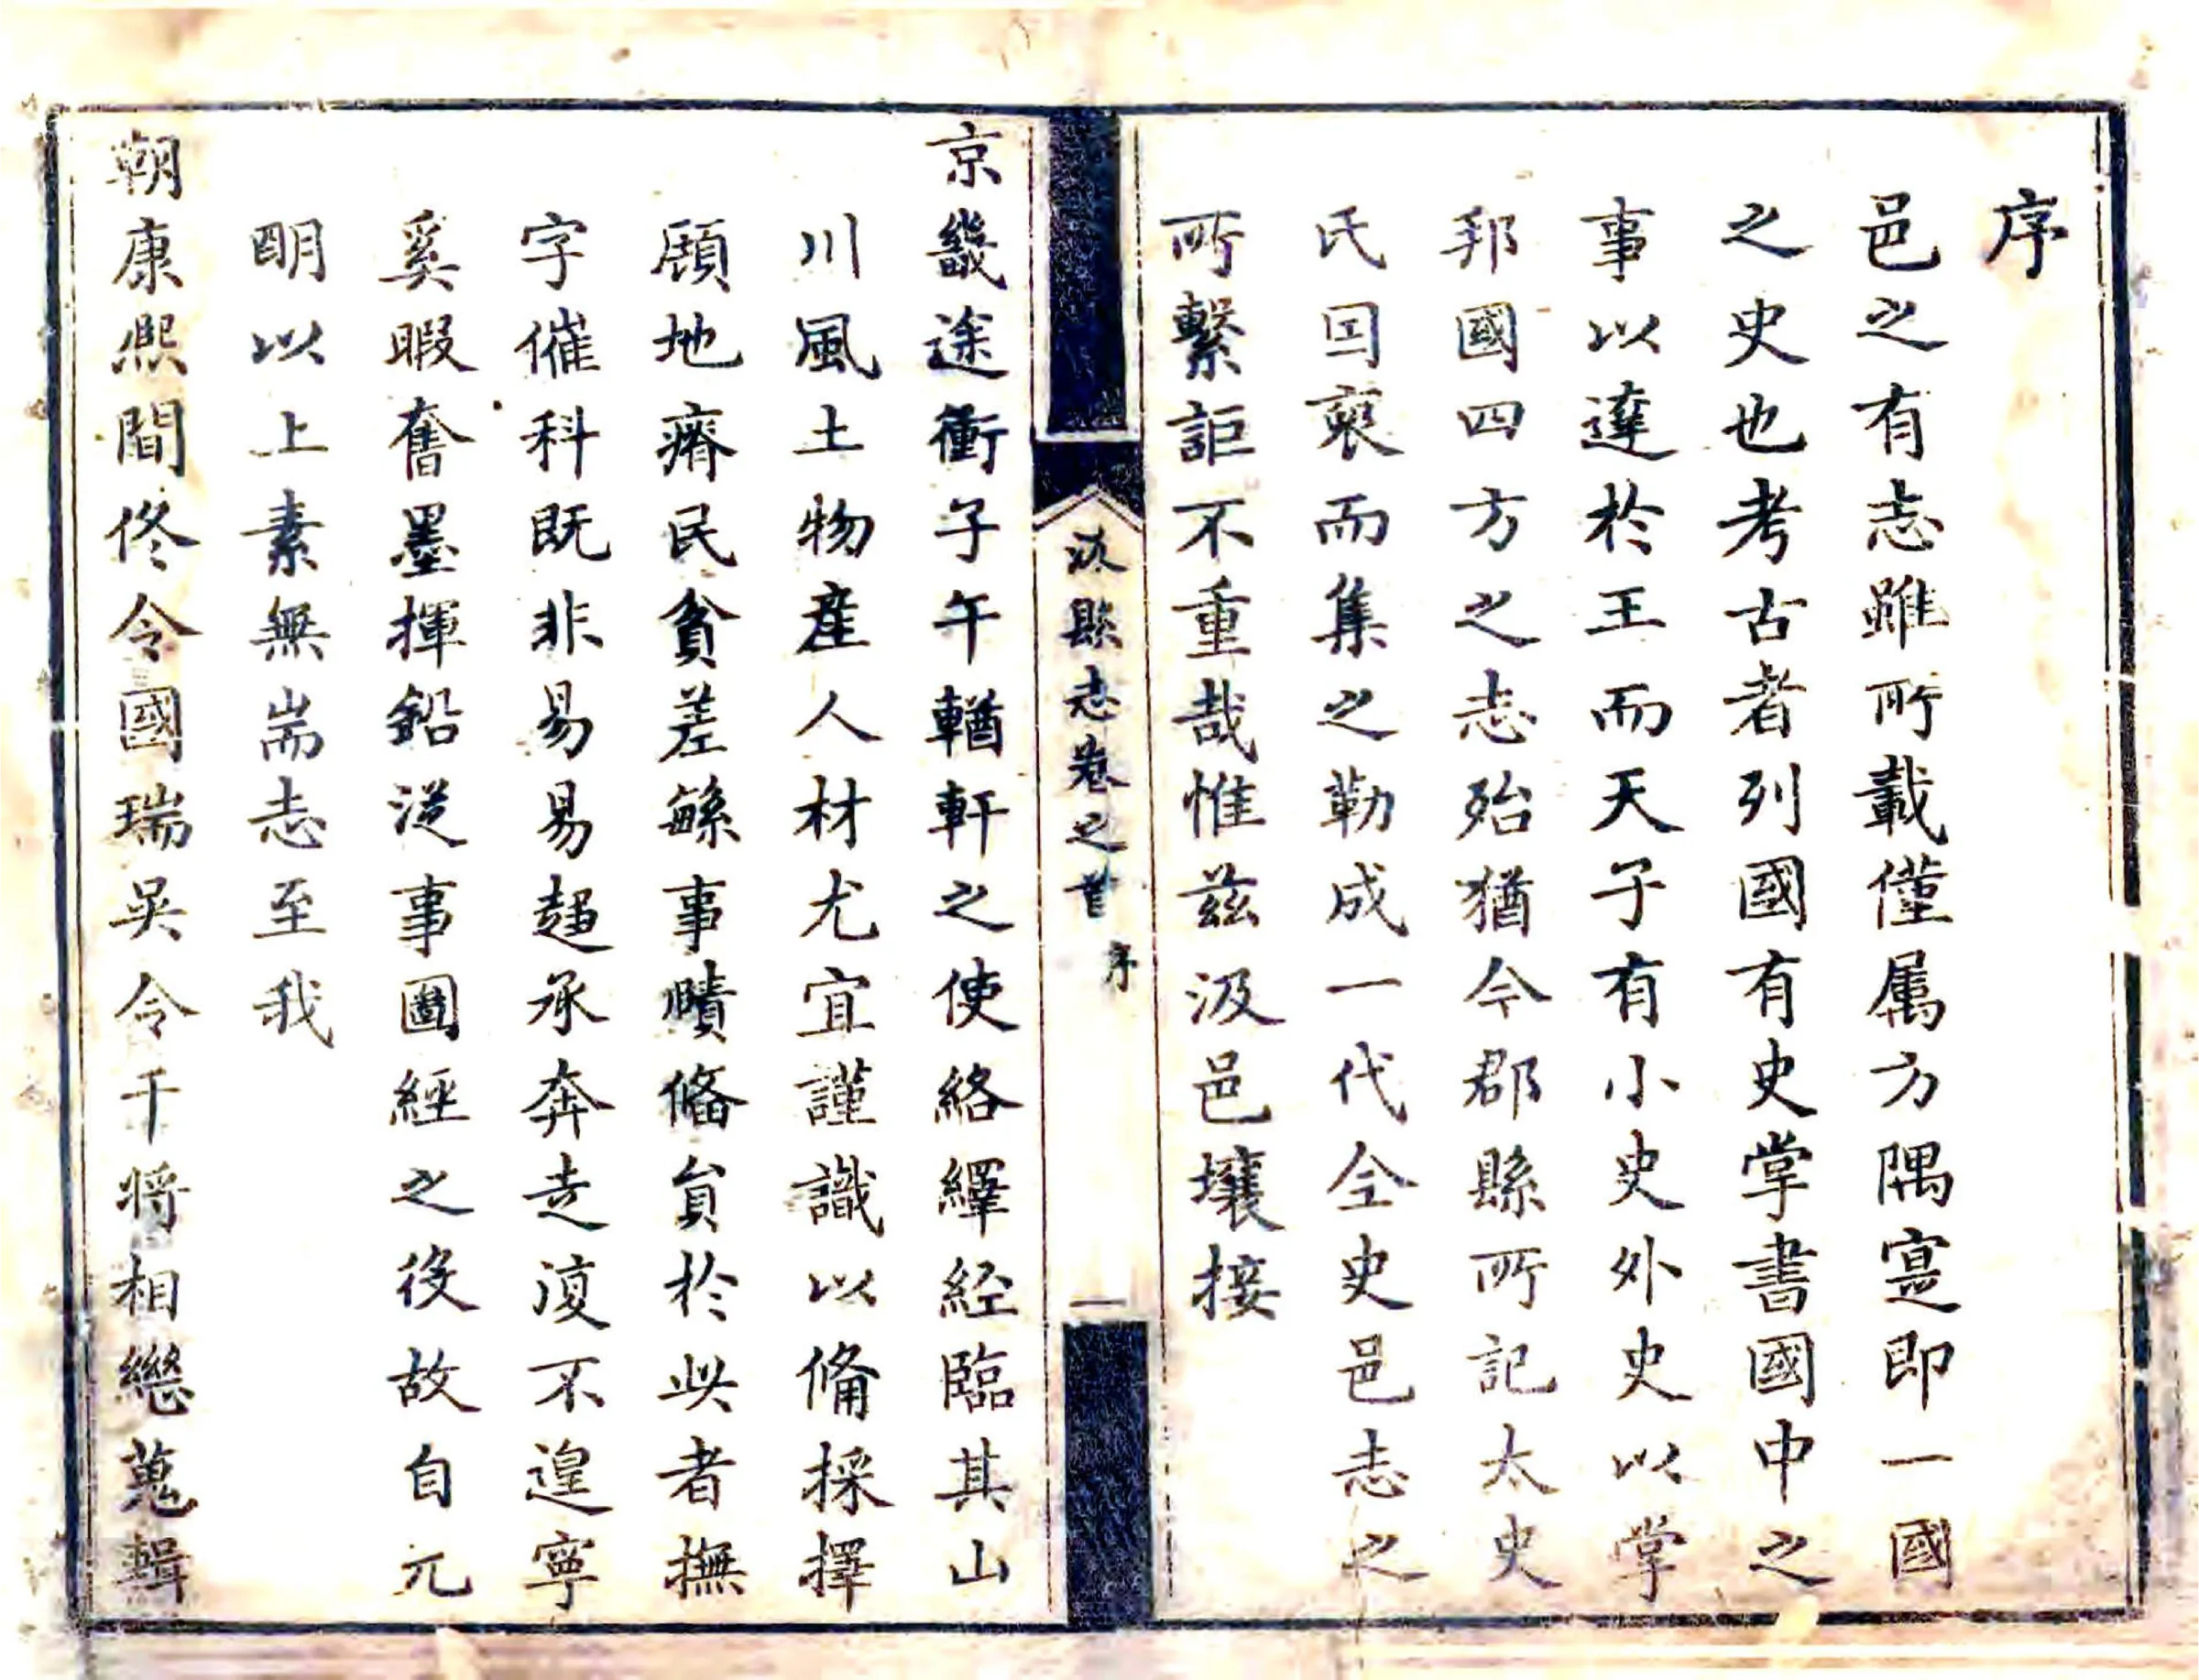 序
邑之有志雖所載僅属方隅寔即一國
之史也考古者列國有史掌書國中之
事以達於王而天子有小史外史以掌
邦國四方之志殆猶今郡縣所記太史
氏囙裒而集之勒成一代全史邑志之
所繫詎不重哉惟茲汲邑壤接
汲縣志卷之首
序
一
京畿途衝子午輶軒之使絡繹經臨其山
川風土物產人材尤宜謹識以備採擇
顧地瘠民貧差繇事賾俻負於此者撫
字催科既非易易趨承奔走復不遑寧
奚暇奮墨揮鉛従事圖經之役故自元
明以上素無耑志至我
朝康熙間佟令國瑞吳令干將相繼蒐輯